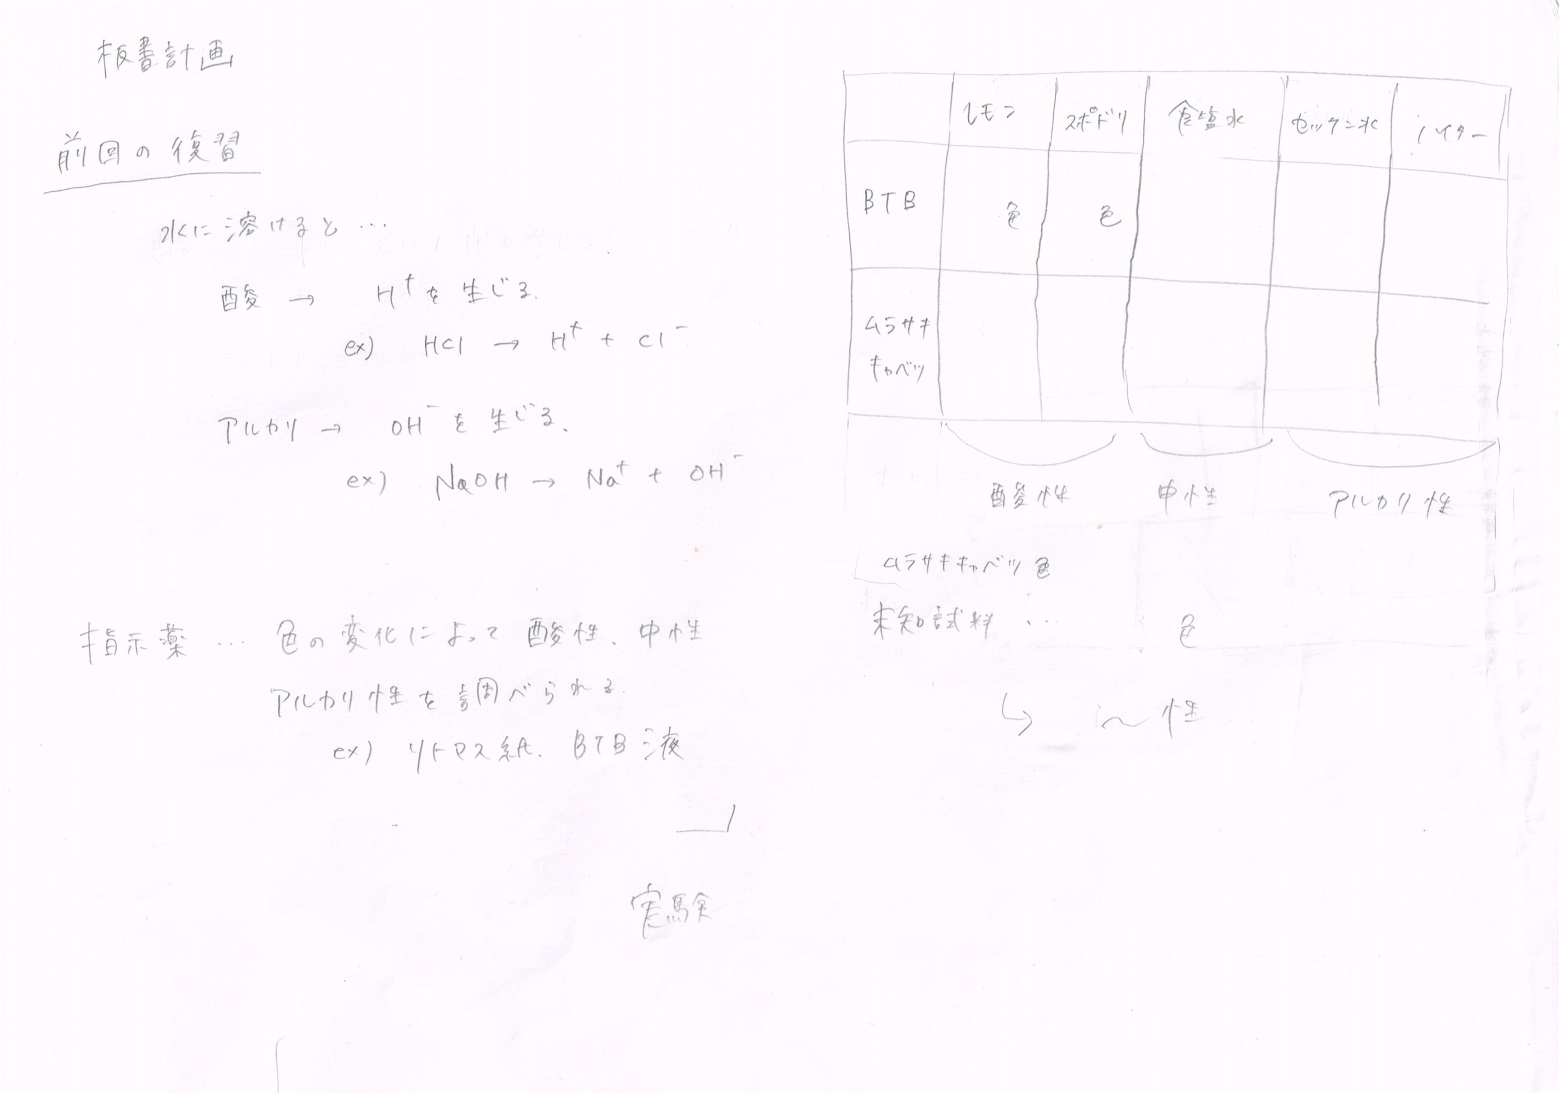 板書計画
前回の復習
水に溶けると…
酸 → H⁺を生じる.
ex) HCl → H⁺ + Cl⁻
アルカリ → OH⁻を生じる.
ex) NaOH → Na⁺ + OH⁻
指示薬 … 色の変化によって酸性、中性
アルカリ性を調べられる.
ex) リトマス紙. BTB液
実験
レモン スポドリ 食塩水 セッケン水 ハイター
BTB 色 色
ムラサキ
キャベツ
酸性 中性 アルカリ性
ムラサキキャベツ色
未知試料 … 色
↳ 〜性